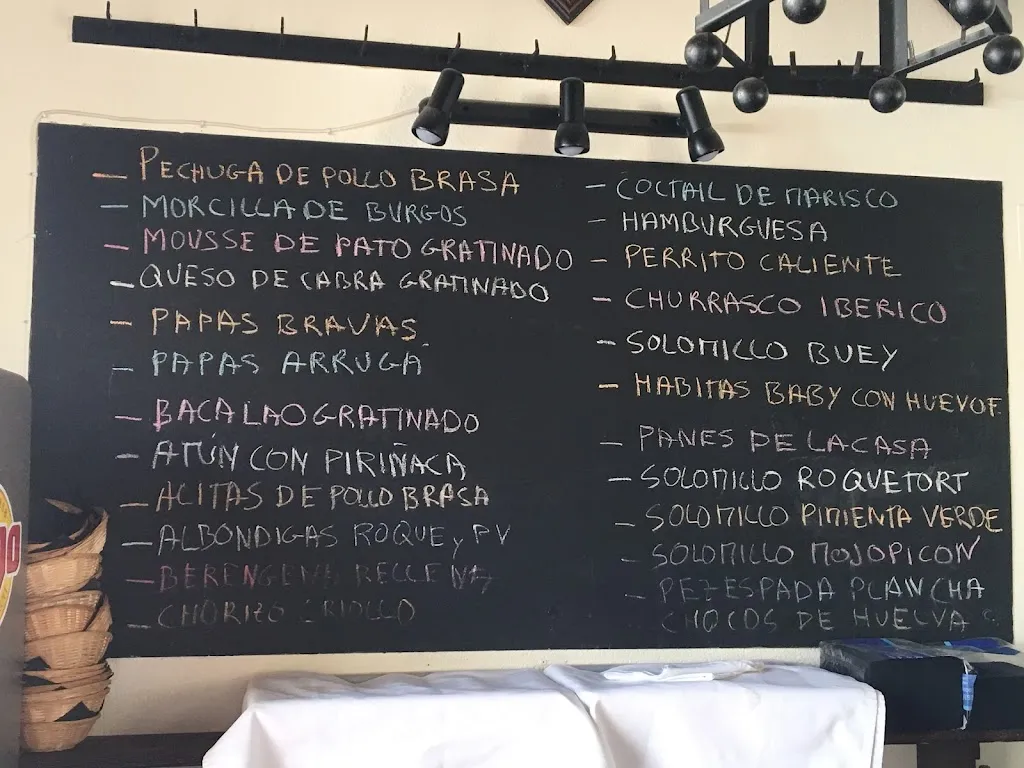 — PECHUGA DE POLLO BRASA
— MORCILLA DE BURGOS
— MOUSSE DE PATO GRATINADO
— QUESO DE CABRA GRATINADO
— PAPAS BRAVAS
— PAPAS ARRUGÁ
— BACALAO GRATINADO
— ATÚN CON PIRIÑACA
— ALITAS DE POLLO BRASA
— ALBONDIGAS ROQUE y PV
— BERENGENA RELLENA
— CHORIZO CRIOLLO
— COCTAIL DE MARISCO
— HAMBURGUESA
— PERRITO CALIENTE
— CHURRASCO IBERICO
— SOLOMILLO BUEY
— HABITAS BABY CON HUEVOF.
— PANES DE LA CASA
— SOLOMILLO ROQUETORT
— SOLOMILLO PIMIENTA VERDE
— SOLOMILLO MOJOPICON
— PEZESPADA PLANCHA
CHOCOS DE HUELVA